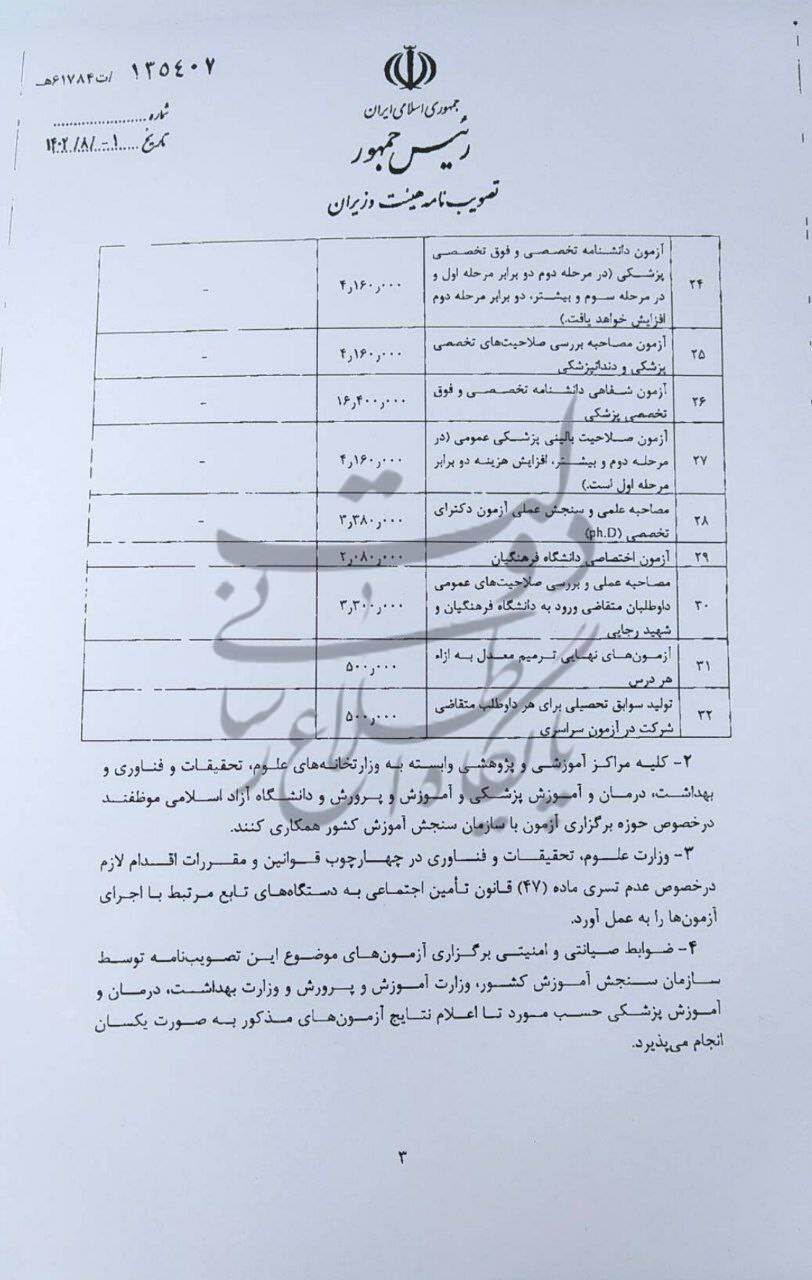 ۱۳۵۴۰۷ /ت۶۱۷۸۴هـ
شماره
تاریخ ۱۴۰۲/۸/۰۱
جمهوری اسلامی ایران
رئیس جمهور
تصویب نامه هیئت وزیران
۲۴ آزمون دانشنامه تخصصی و فوق تخصصی ۴٫۱۶۰٫۰۰۰ -
پزشکی (در مرحله دوم دو برابر مرحله اول و
در مرحله سوم و بیشتر، دو برابر مرحله دوم
افزایش خواهد یافت.)
۲۵ آزمون مصاحبه بررسی صلاحیت‌های تخصصی ۴٫۱۶۰٫۰۰۰ -
پزشکی و دندانپزشکی
۲۶ آزمون شفاهی دانشنامه تخصصی و فوق ۱۶٫۴۰۰٫۰۰۰ -
تخصصی پزشکی
۲۷ آزمون صلاحیت بالینی پزشکی عمومی (در ۴٫۱۶۰٫۰۰۰ -
مرحله دوم و بیشتر، افزایش هزینه دو برابر
مرحله اول است.)
۲۸ مصاحبه علمی و سنجش عملی آزمون دکترای ۳٫۳۸۰٫۰۰۰ -
تخصصی (ph.D)
۲۹ آزمون اختصاصی دانشگاه فرهنگیان ۲٫۰۸۰٫۰۰۰
۳۰ مصاحبه عملی و بررسی صلاحیت‌های عمومی ۳٫۳۰۰٫۰۰۰
داوطلبان متقاضی ورود به دانشگاه فرهنگیان و
شهید رجایی
۳۱ آزمون‌های نهایی ترمیم معدل به ازاء ۵۰۰٫۰۰۰
هر درس
۳۲ تولید سوابق تحصیلی برای هر داوطلب متقاضی ۵۰۰٫۰۰۰
شرکت در آزمون سراسری
۲- کلیه مراکز آموزشی و پژوهشی وابسته به وزارتخانه‌های علوم، تحقیقات و فناوری و
بهداشت، درمان و آموزش پزشکی و آموزش و پرورش و دانشگاه آزاد اسلامی موظفند
درخصوص حوزه برگزاری آزمون با سازمان سنجش آموزش کشور همکاری کنند.
۳- وزارت علوم، تحقیقات و فناوری در چهارچوب قوانین و مقررات اقدام لازم
درخصوص عدم تسری ماده (۴۷) قانون تأمین اجتماعی به دستگاه‌های تابع مرتبط با اجرای
آزمون‌ها را به عمل آورد.
۴- ضوابط صیانتی و امنیتی برگزاری آزمون‌های موضوع این تصویب‌نامه توسط
سازمان سنجش آموزش کشور، وزارت آموزش و پرورش و وزارت بهداشت، درمان و
آموزش پزشکی حسب مورد تا اعلام نتایج آزمون‌های مذکور به صورت یکسان
انجام می‌پذیرد.
۳
پایگاه اطلاع رسانی دولت